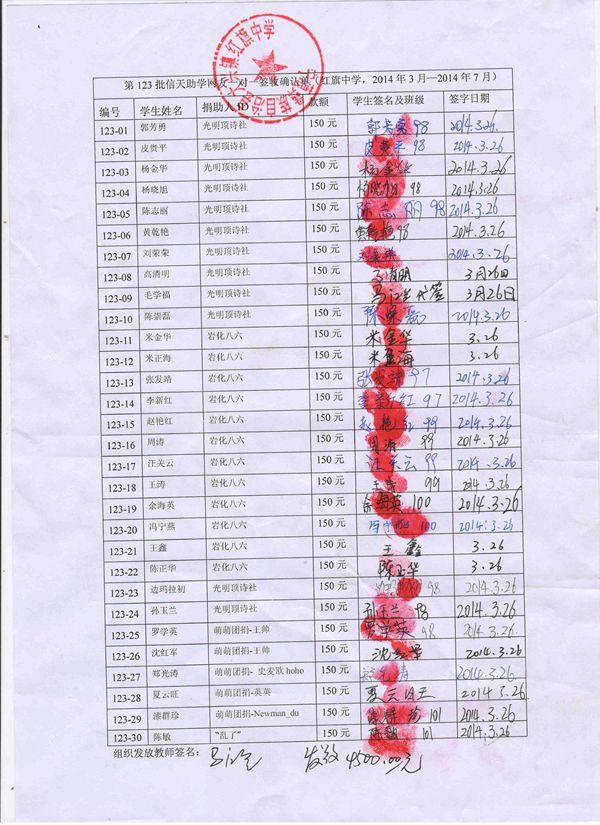 第 123 批信天助学网友一对一签收确认单（红旗中学，2014 年 3 月—2014 年 7 月）
编号 学生姓名 捐助人 ID 款额 学生签名及班级 签字日期
123-01 郭芳勇 光明顶诗社 150 元 郭芳勇 98 2014.3.26
123-02 皮贵平 光明顶诗社 150 元 皮贵平 98 2014.3.26
123-03 杨金华 光明顶诗社 150 元 杨金华 2014.3.26
123-04 杨晓旭 光明顶诗社 150 元 杨晓旭 98 2014.3.26
123-05 陈志丽 光明顶诗社 150 元 陈志丽 98 2014.3.26
123-06 黄乾艳 光明顶诗社 150 元 黄乾艳 98 2014.3.26
123-07 刘荣荣 光明顶诗社 150 元 刘荣荣 2014.3.26
123-08 高清明 光明顶诗社 150 元 高清明 3月26日
123-09 毛学福 光明顶诗社 150 元 代签 3月26日
123-10 陈崇磊 光明顶诗社 150 元 陈崇磊 2014.3.26
123-11 米金华 岩化八六 150 元 米金华 3.26
123-12 米正海 岩化八六 150 元 米正海 3.26
123-13 张发靖 岩化八六 150 元 张发靖 97 2014.3.26
123-14 李新红 岩化八六 150 元 李新红 97 2014.3.26
123-15 赵艳红 岩化八六 150 元 赵艳红 99 2014.3.26
123-16 周涛 岩化八六 150 元 周涛 99 2014.3.26
123-17 汪关云 岩化八六 150 元 汪关云 99 2014.3.26
123-18 王涛 岩化八六 150 元 王涛 99 2014.3.26
123-19 余海英 岩化八六 150 元 余海英 100 2014.3.26
123-20 冯宁燕 岩化八六 150 元 冯宁燕 100 2014.3.26
123-21 王鑫 岩化八六 150 元 王鑫 3.26
123-22 陈正华 岩化八六 150 元 陈正华 3.26
123-23 边玛拉初 光明顶诗社 150 元 98 2014.3.26
123-24 孙玉兰 光明顶诗社 150 元 孙玉兰 98 2014.3.26
123-25 罗学英 萌萌团捐-王帅 150 元 罗学英 98 2014.3.26
123-26 沈红军 萌萌团捐-王帅 150 元 沈红军 2014.3.26
123-27 郑光涛 萌萌团捐- 史麦欧 hoho 150 元 2014.3.26
123-28 夏云旺 萌萌团捐-英英 150 元 夏云旺 2014.3.26
123-29 漆群珍 萌萌团捐-Newman_du 150 元 101 2014.3.26
123-30 陈敏 “乱了” 150 元 陈敏 101 2014.3.26
组织发放教师签名： 发放 4500.00元
红旗中学